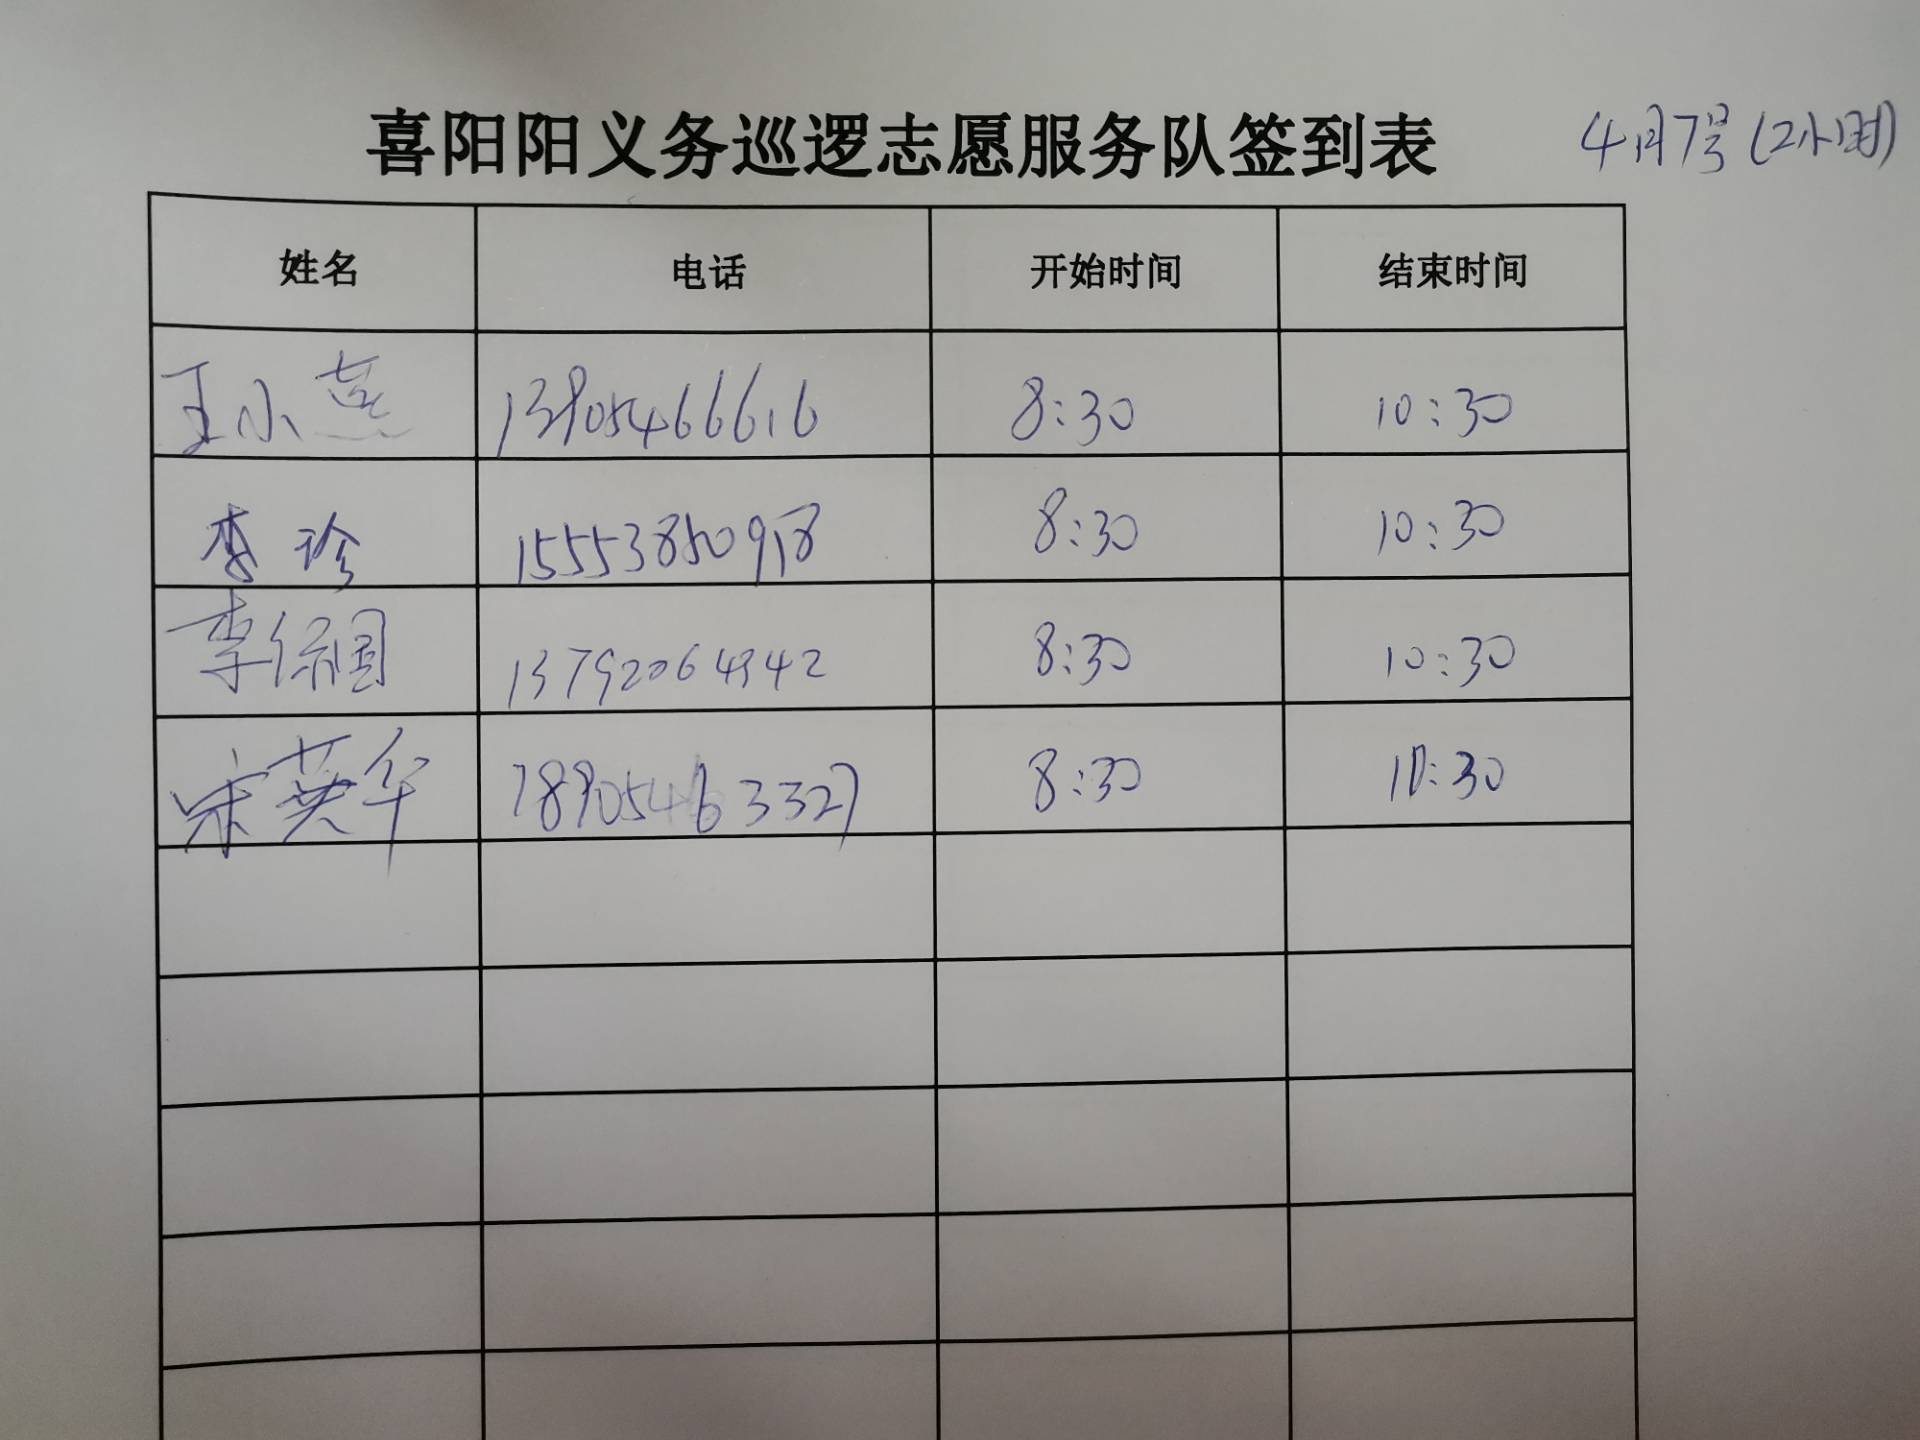 喜阳阳义务巡逻志愿服务队签到表 4月7号(2小时)
姓名 电话 开始时间 结束时间
王小燕 13905466616 8:30 10:30
李珍 15553850918 8:30 10:30
李保国 13792064942 8:30 10:30
宋英华 18905463327 8:30 10:30